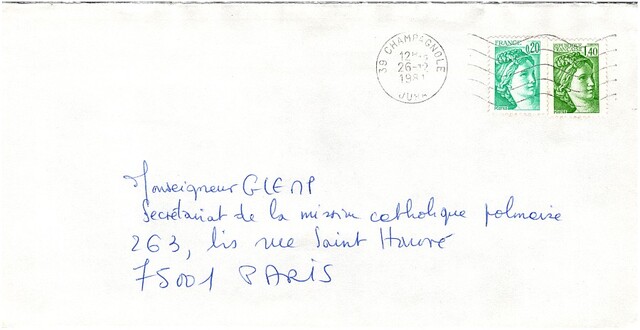 39 CHAMPAGNOLE
12H
26-12
1981
JURA
FRANCE
0,20
1,40
Monseigneur GLEMP
Secrétariat de la mission catholique polonaise
263, bis rue Saint Honoré
75001 PARIS